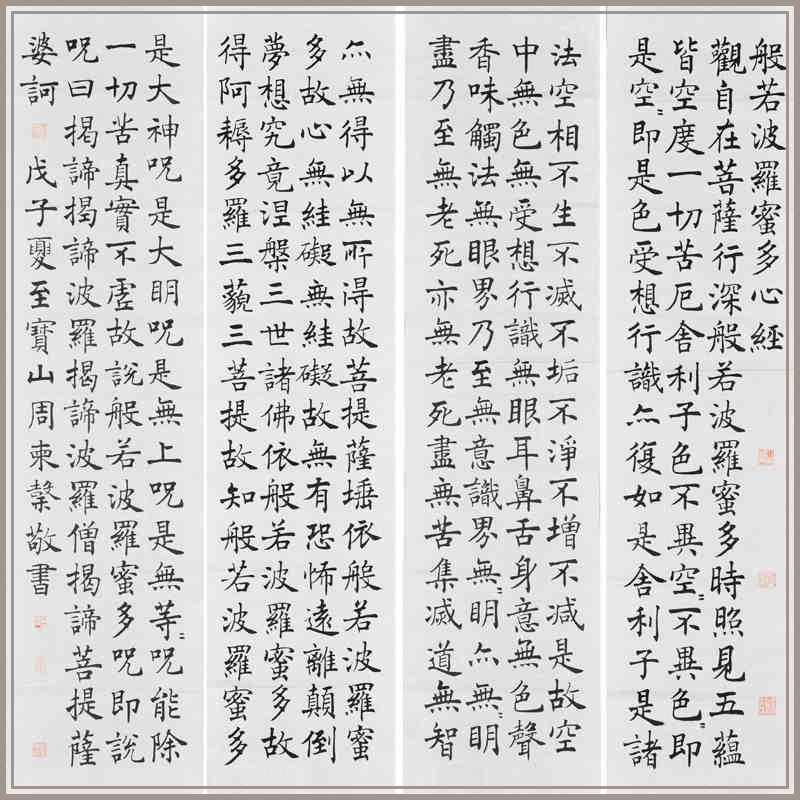 般若波羅蜜多心經
觀自在菩薩行深般若波羅蜜多時照見五蘊
皆空度一切苦厄舍利子色不異空〻不異色〻即
是空〻即是色受想行識亦復如是舍利子是諸
法空相不生不滅不垢不淨不增不減是故空
中無色無受想行識無眼耳鼻舌身意無色聲
香味觸法無眼界乃至無意識界無〻明亦無〻明
盡乃至無老死亦無老死盡無苦集滅道無智
亦無得以無所得故菩提薩埵依般若波羅蜜
多故心無絓礙無絓礙故無有恐怖遠離顛倒
夢想究竟涅槃三世諸佛依般若波羅蜜多故
得阿耨多羅三藐三菩提故知般若波羅蜜多
是大神咒是大明咒是無上咒是無等〻咒能除
一切苦真實不虛故說般若波羅蜜多咒即說
咒曰揭諦揭諦波羅揭諦波羅僧揭諦菩提薩
婆訶 戊子夏至寶山周敬書